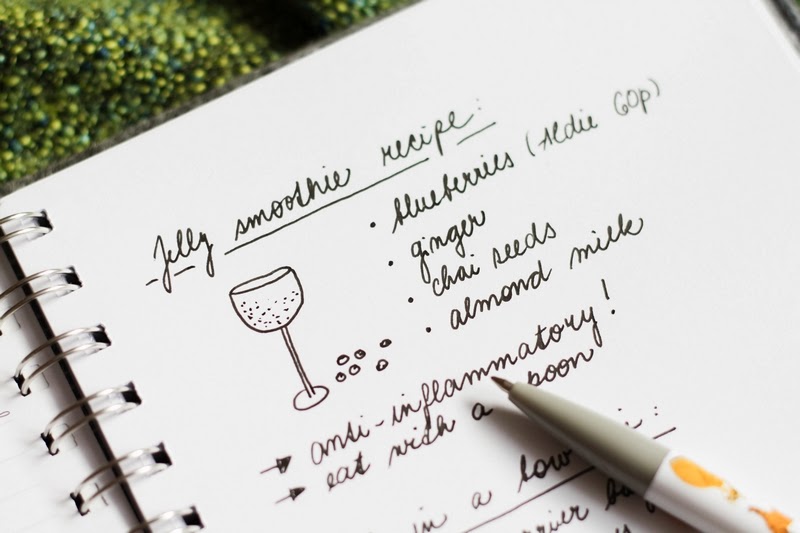 Jelly smoothie recipe:
• blueberries (Aldie 60p)
• ginger
• chai seeds
• almond milk
→ anti-inflammatory!
→ eat with a spoon
in a